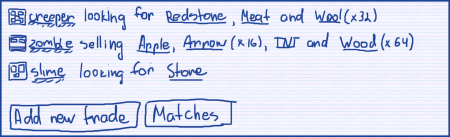 creeper looking for Redstone, Meat and Wool (x32)
zombie selling Apple, Arrow (x16), TNT and Wood (x64)
slime looking for Stone
Add new trade Matches